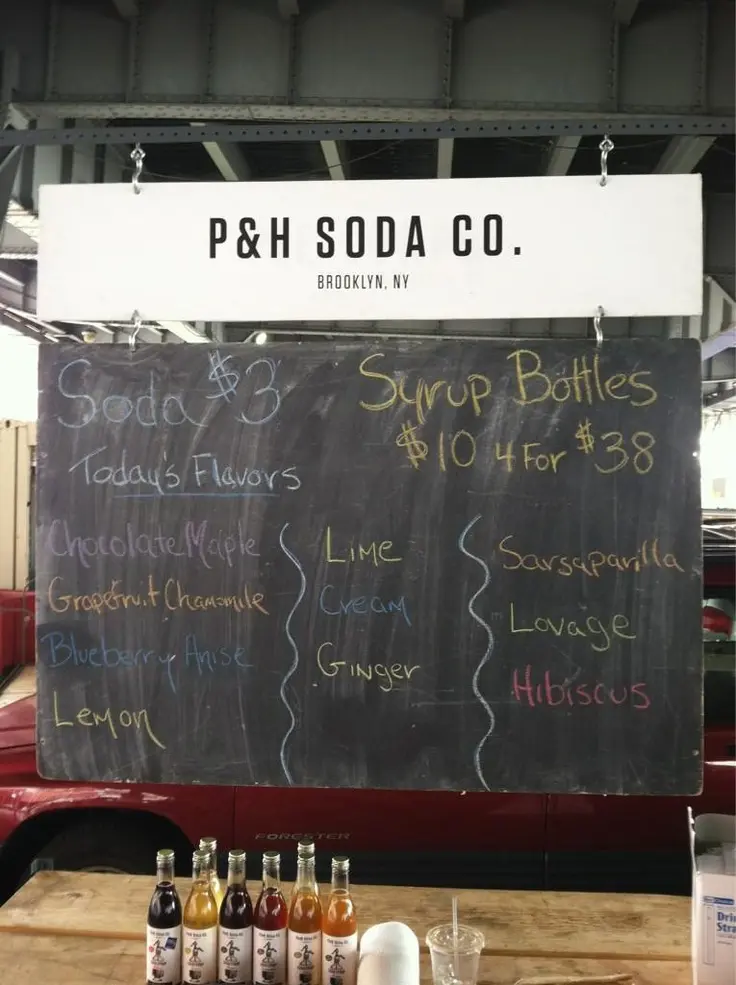 P&H SODA CO.
BROOKLYN, NY
Soda $3
Today's Flavors
Chocolate Maple
Grapefruit Chamomile
Blueberry Anise
Lemon
Syrup Bottles
$10 4 For $38
Lime
Cream
Ginger
Sarsaparilla
Lovage
Hibiscus
FORESTER